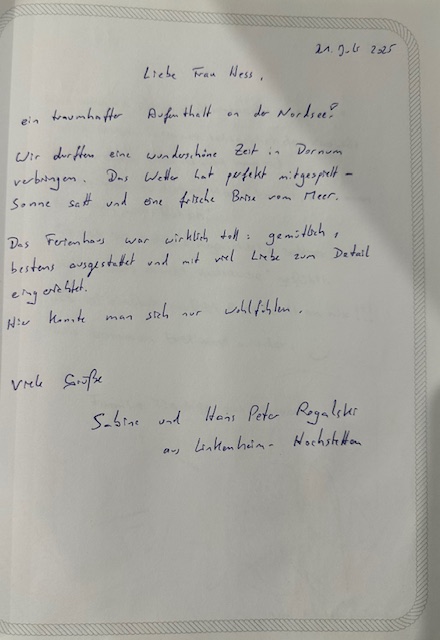 21. Juli 2025
Liebe Frau Hess,
ein traumhafter Aufenthalt an der Nordsee!
Wir durften eine wunderschöne Zeit in Dornum
verbringen. Das Wetter hat perfekt mitgespielt -
Sonne satt und eine frische Brise vom Meer.
Das Ferienhaus war wirklich toll: gemütlich,
bestens ausgestattet und mit viel Liebe zum Detail
eingerichtet.
Hier konnte man sich nur wohlfühlen.
Viele Grüße
Sabine und Hans Peter Rogalski
aus Linkenheim-Hochstetten